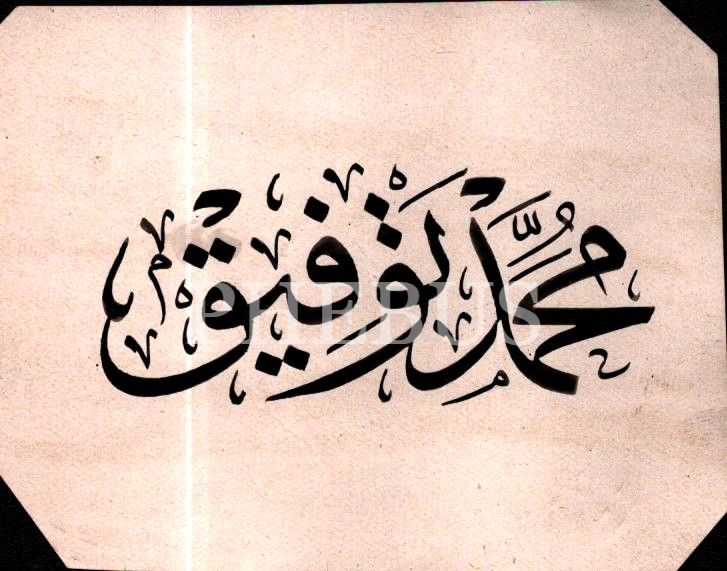 محمد توفيق
PHEBUS